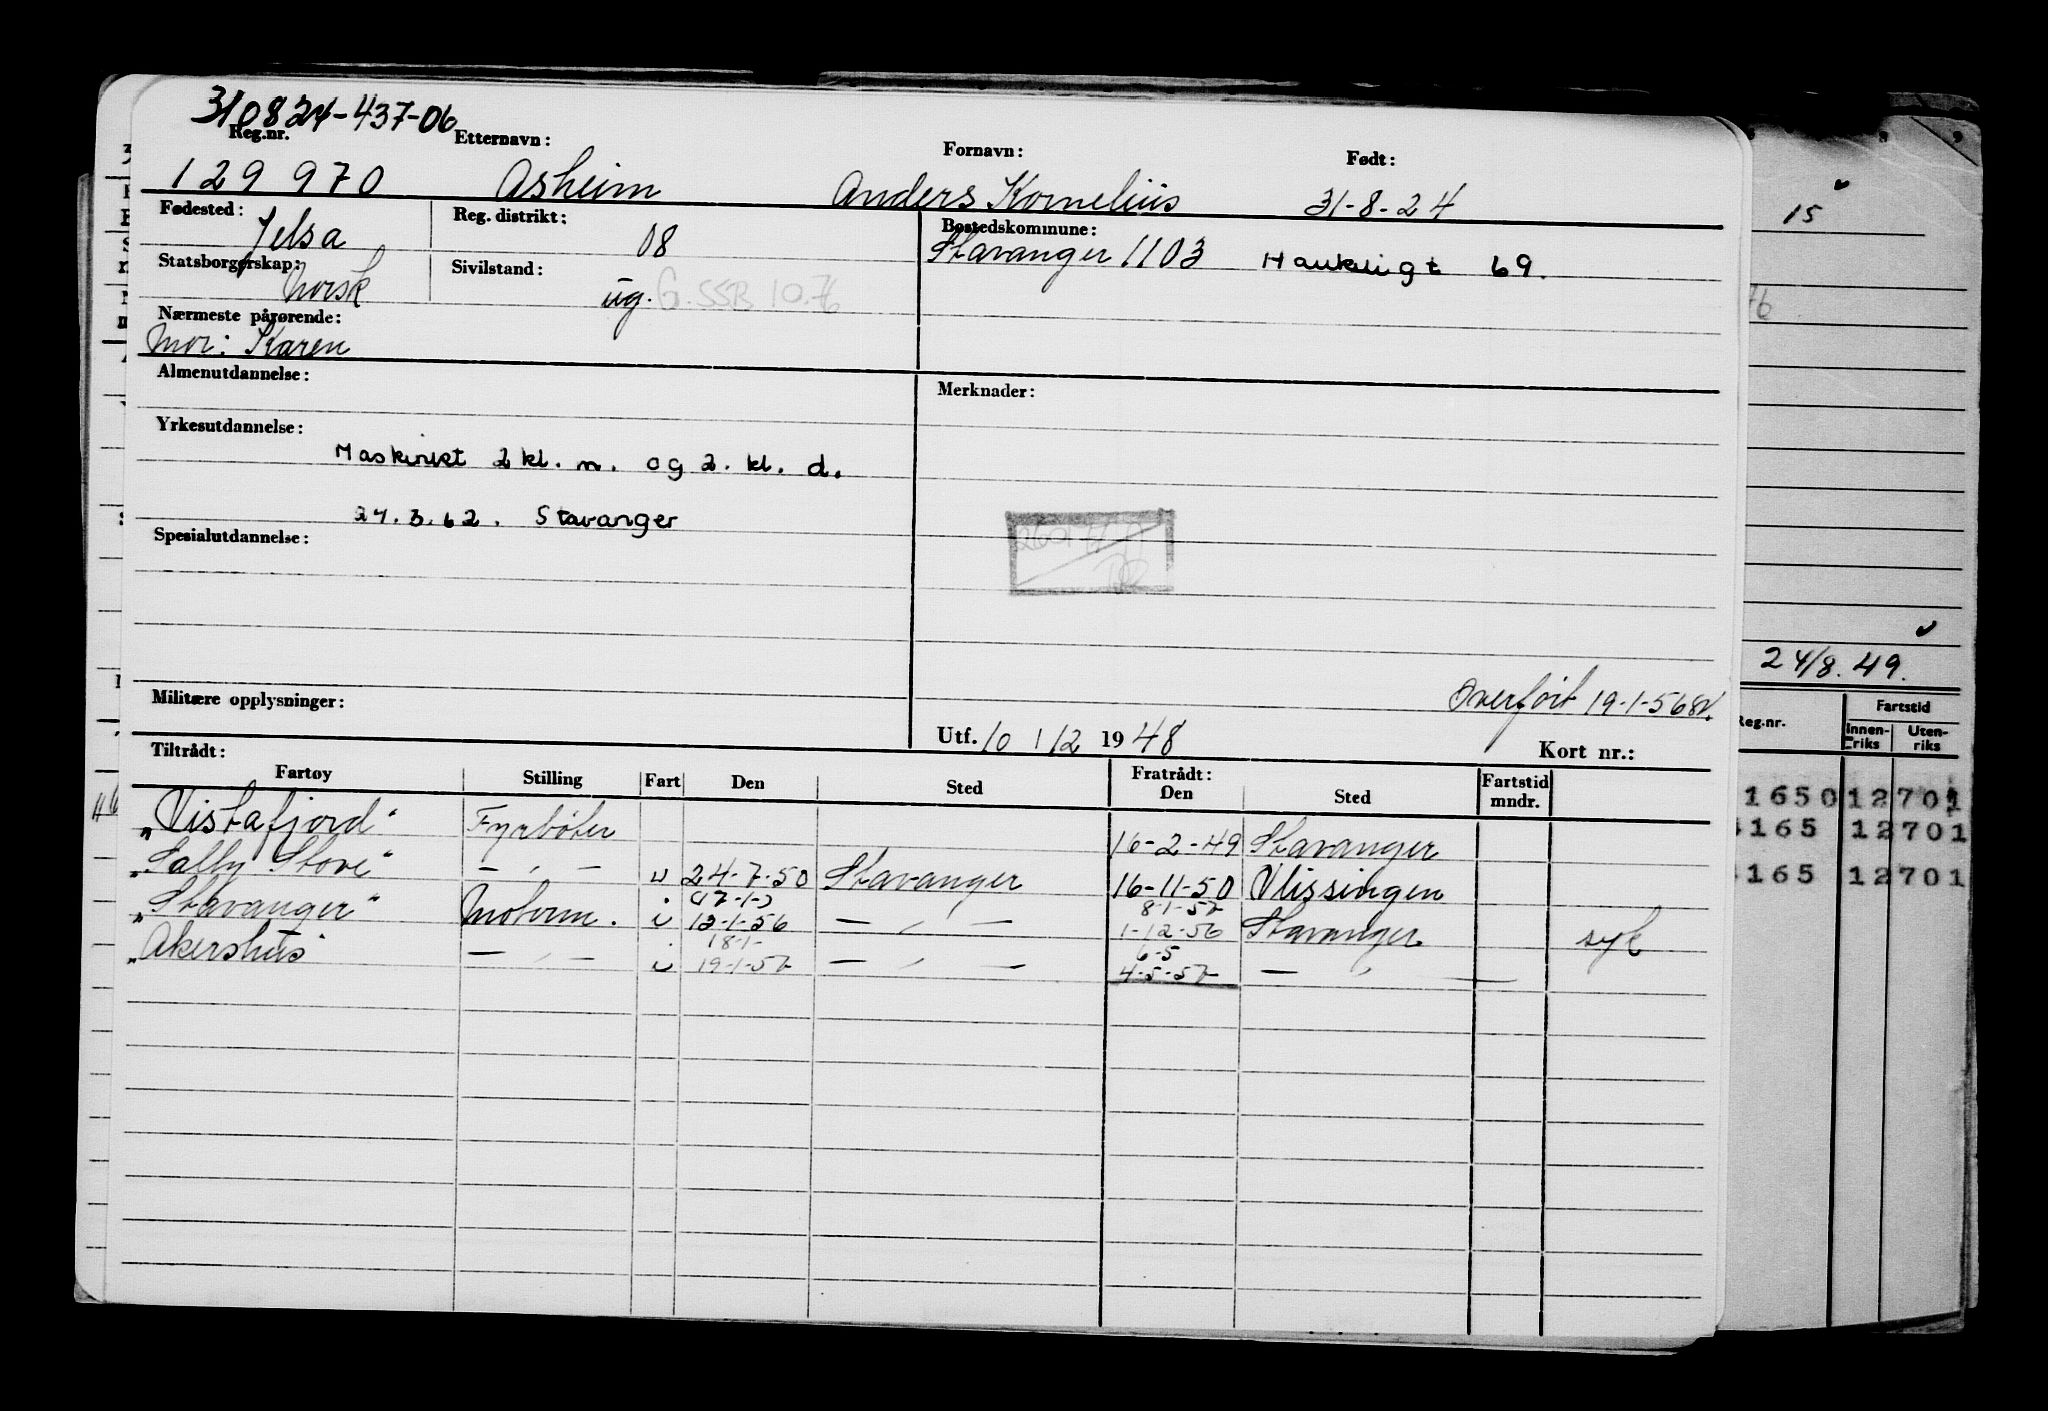 310824-437-06
Reg.nr. Etternavn: Fornavn: Født:
129 970 Asheim Anders Kornelius 31-8-24
Fødested: Jelsa Reg. distrikt: 08 Bostedskommune: Stavanger 1103 Haukeligt 69.
Statsborgerskap: Norsk Sivilstand: ug. G. SSB 10.76
Nærmeste pårørende:
Mor: Karen
Almenutdannelse: Merknader:
Yrkesutdannelse:
Maskinist 2 kl. m. og 2. kl. d.
24.3.62. Stavanger
Spesialutdannelse:
Militære opplysninger: Overført 19-1-56
Utf. 10 / 12 1948 Kort nr.:
Tiltrådt: Fratrådt:
Fartøy Stilling Fart Den Sted Den Sted Fartstid mndr.
"Vistafjord" Fyrbøter 16-2-49 Stavanger
"Sally Stove" — " — u 24-7-50 Stavanger 16-11-50 Vlissingen
(17-1-) 8-1-57
"Stavanger" Motorm. u 12-1-56 — " — 1-12-56 Stavanger syk
18-1- 6-5
"Akershus" — " — u 19-1-57 — " — 4-5-57 — " —
15
76
24/8.49.
Reg.nr. Fartstid
Innenriks Utenriks
1650 12701
4165 12701
4165 12701